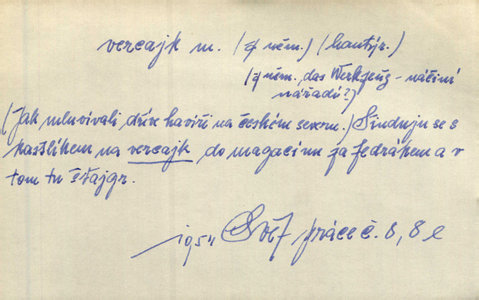 vercajk m. (z něm.) (hantýr.)
(z něm. das Werkzeug - náčiní
nářadí?)
(Jak mluvívali dříve havíři na českém severu.) Šinduju se s
kastlíkem na vercajk do magacínu za fedrákem a v
tom tu štajgr.
1954 Svět práce č. 8, 8